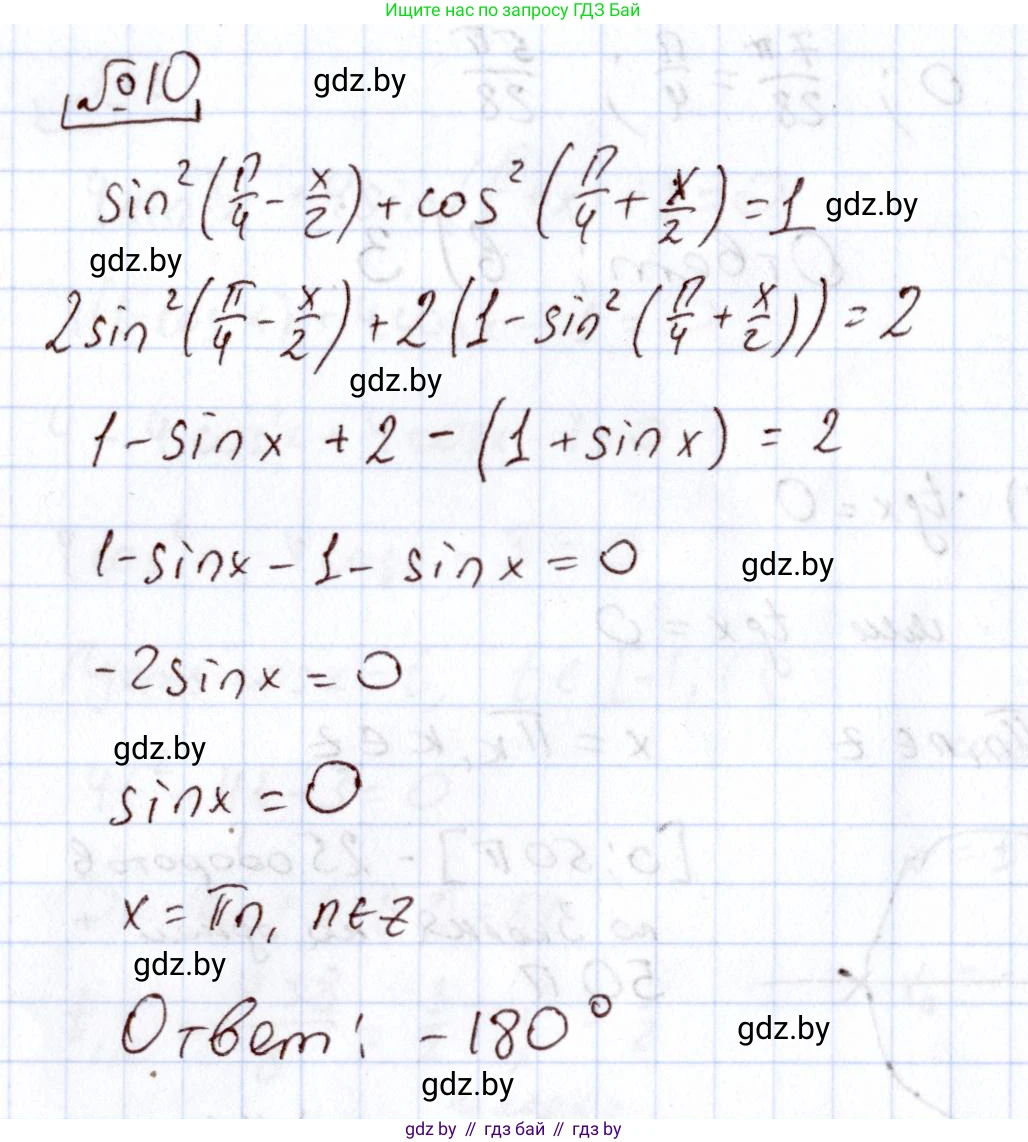 Ищите нас по запросу ГДЗ Бай
№10 gdz.by
sin²(π/4 - x/2) + cos²(π/4 + x/2) = 1 gdz.by
gdz.by
2sin²(π/4 - x/2) + 2(1 - sin²(π/4 + x/2)) = 2
gdz.by
1 - sinx + 2 - (1 + sinx) = 2
1 - sinx - 1 - sinx = 0 gdz.by
-2sinx = 0
gdz.by
sinx = 0
x = πn, n∈z
gdz.by
Ответ: -180° gdz.by
gdz.by
gdz.by // гдз бай // гдз by